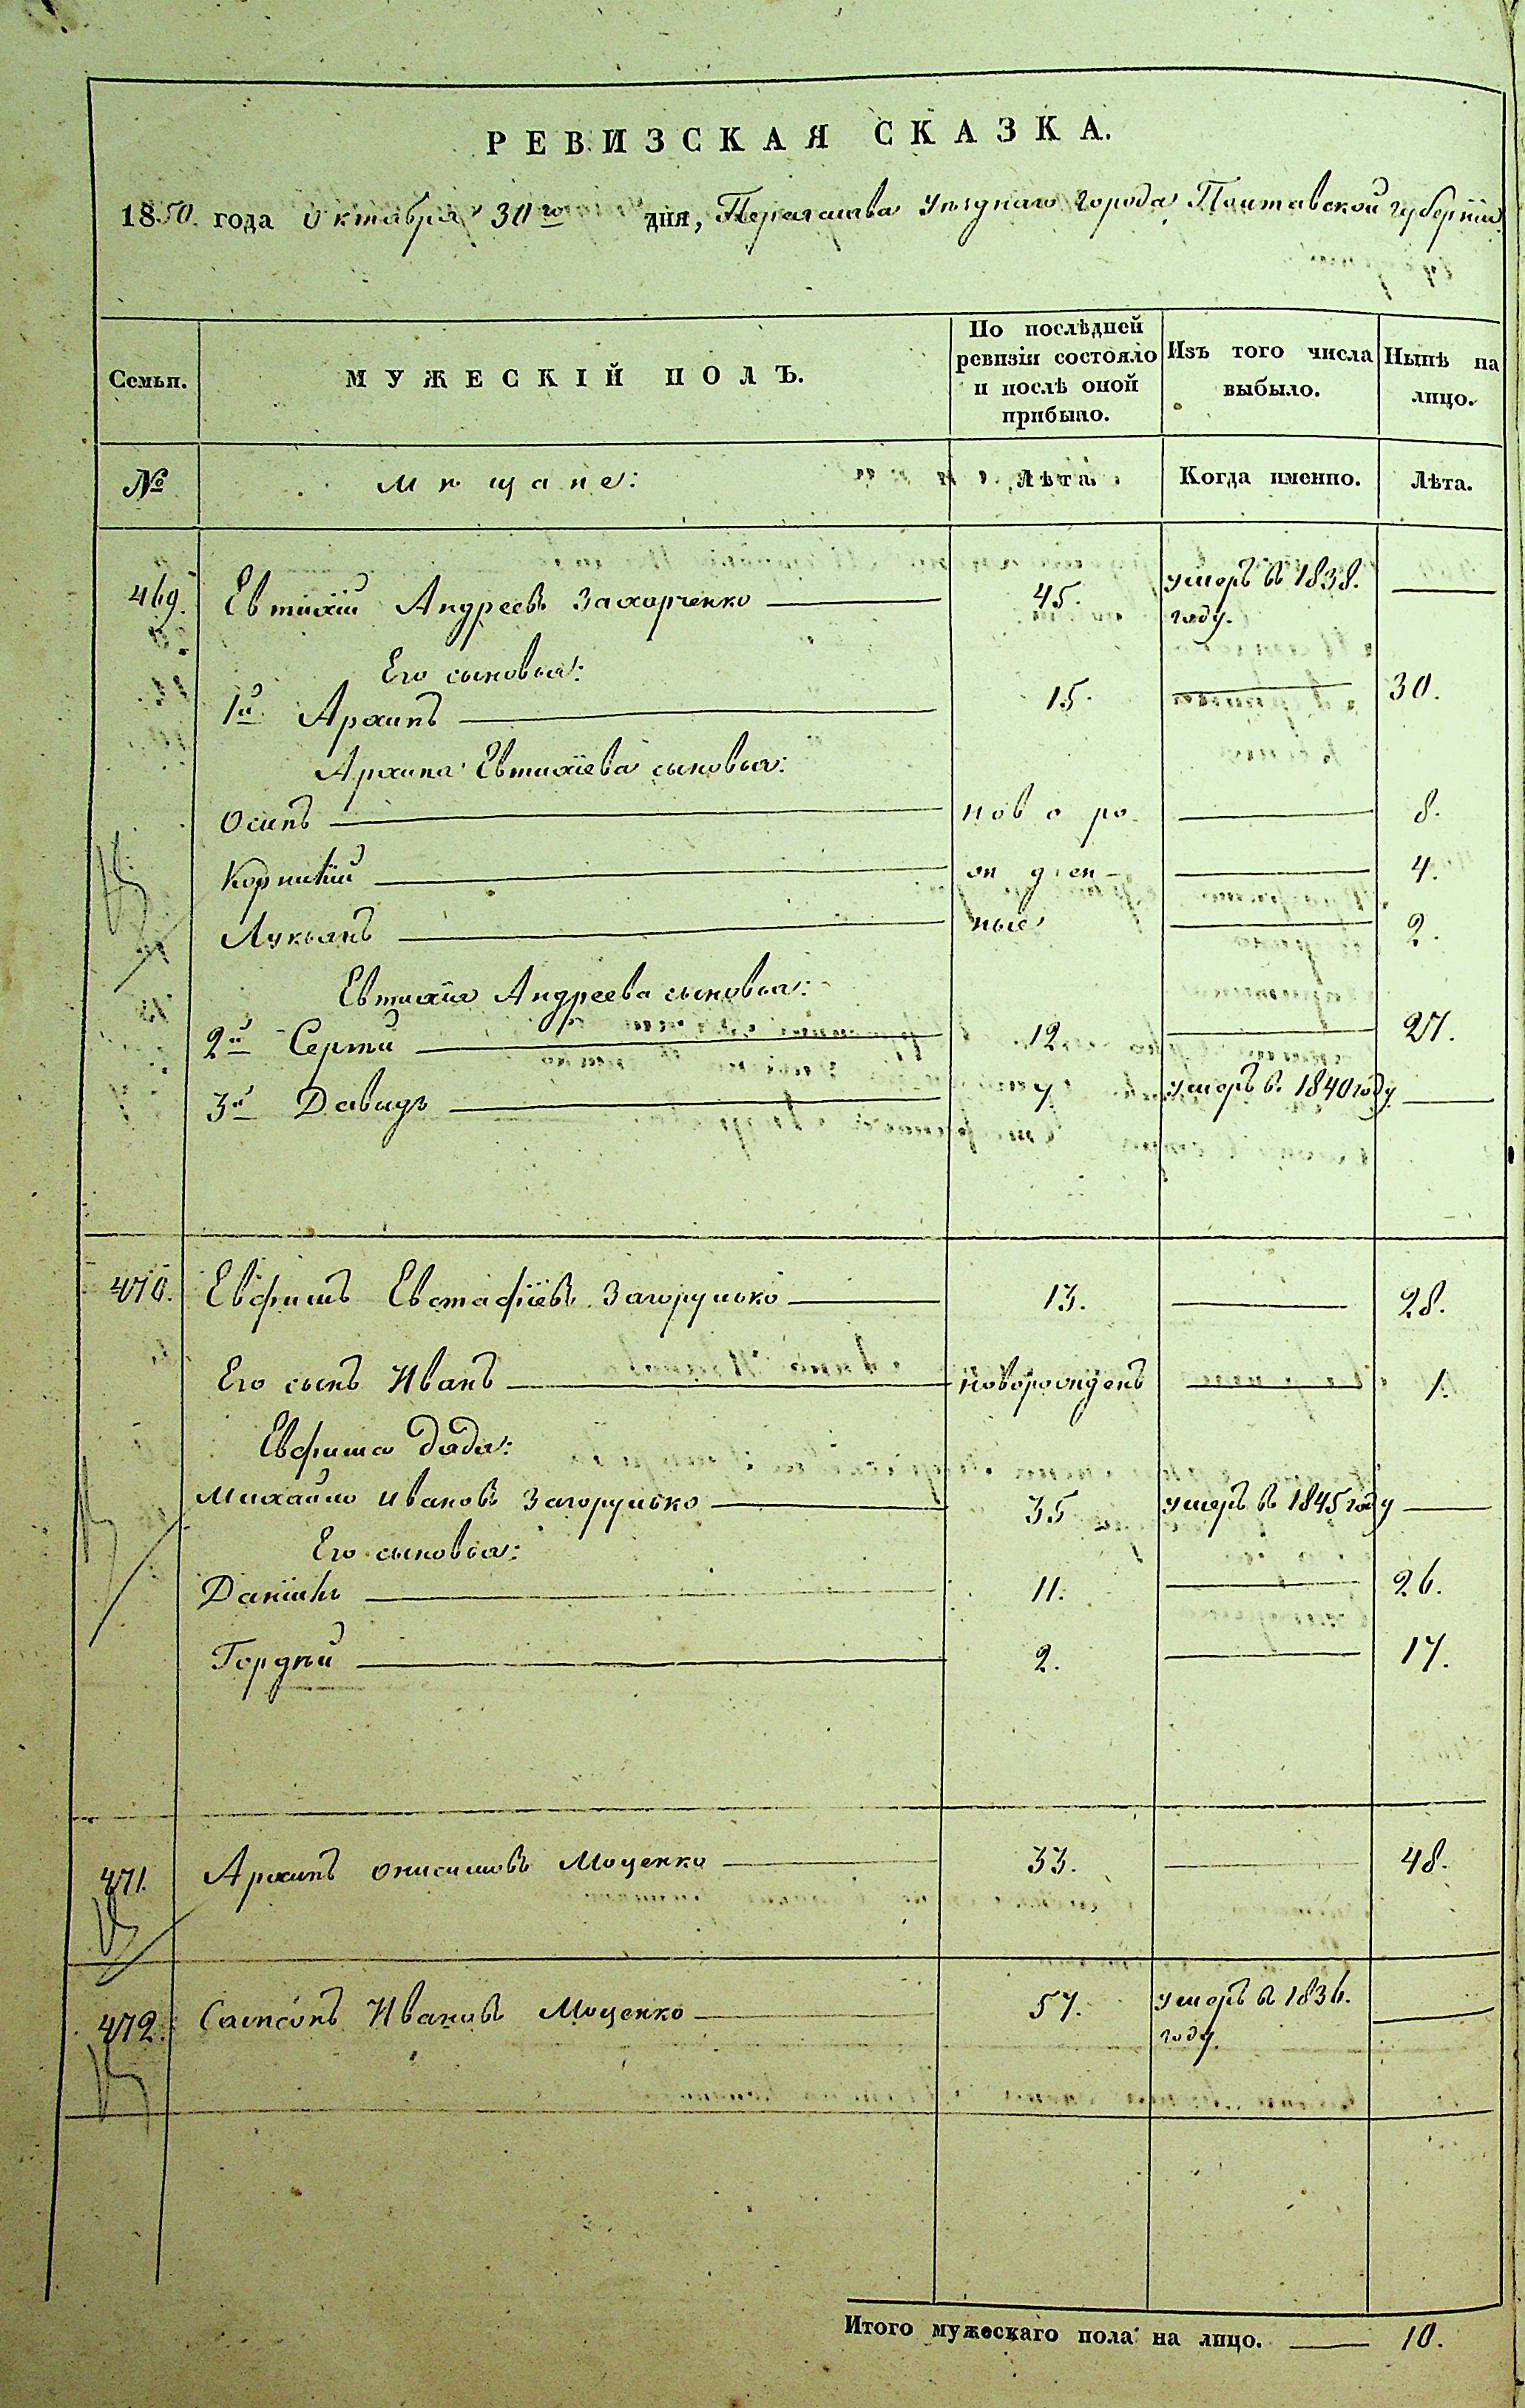 РЕВИЗСКАЯ СКАЗКА.
1850 года Октября 30го дня, Переяслава Уѣзднаго города Полтавской губерніи
Семьи. МУЖЕСКІЙ ПОЛЪ. По послѣдней ревизіи состояло и послѣ оной прибыло. Изъ того числа выбыло. Нынѣ на лицо.
№ Мѣщане: Лѣта. Когда именно. Лѣта.
469. Евтихій Андреевъ Захарченко 45. умеръ въ 1838. году.
Его сыновья:
1й Архипъ 15. 30.
Архипа Евтихіева сыновья:
Осипъ новоро- 8.
Корнилій жден- 4.
Лукьянъ ные 2.
Евтихія Андреева сыновья:
2й Сергій 12 27.
3й Давидъ 7 умеръ в. 1840 году
470. Евфимъ Евстафіевъ Загорулько 13. 28.
Его сынъ Иванъ новорожденъ 1.
Евфима дядя:
Михайло Ивановъ Загорулько 35 умеръ в 1845 году
Его сыновья:
Даніилъ 11. 26.
Гордѣй 2. 17.
471. Архипъ Онисимовъ Моценко 33. 48.
472. Самсонъ Ивановъ Моценко 57. умеръ в 1836. году.
Итого мужескаго пола на лицо. 10.